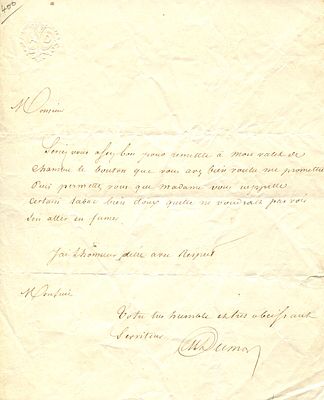 400
Monsieur
Seriez vous assez bon pour remettre à mon valet de
chambre le bouton que vous avez bien voulu me promettre
Puis permettez vous que madame vous rappelle
certain tabac bien doux quelle ne voudrait pas voir
s'en aller en fumée
J'ai l'honneur d'être avec Respect
Monsieur
Votre très humble et très obeissant
Serviteur
Dumas